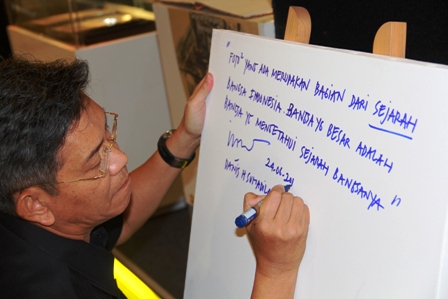 "FOTO² YANG ADA MERUPAKAN BAGIAN DARI SEJARAH
BANGSA INDONESIA. BANGSA YG BESAR ADALAH
BANGSA YG MENGETAHUI SEJARAH BANGSANYA"
24.06.211